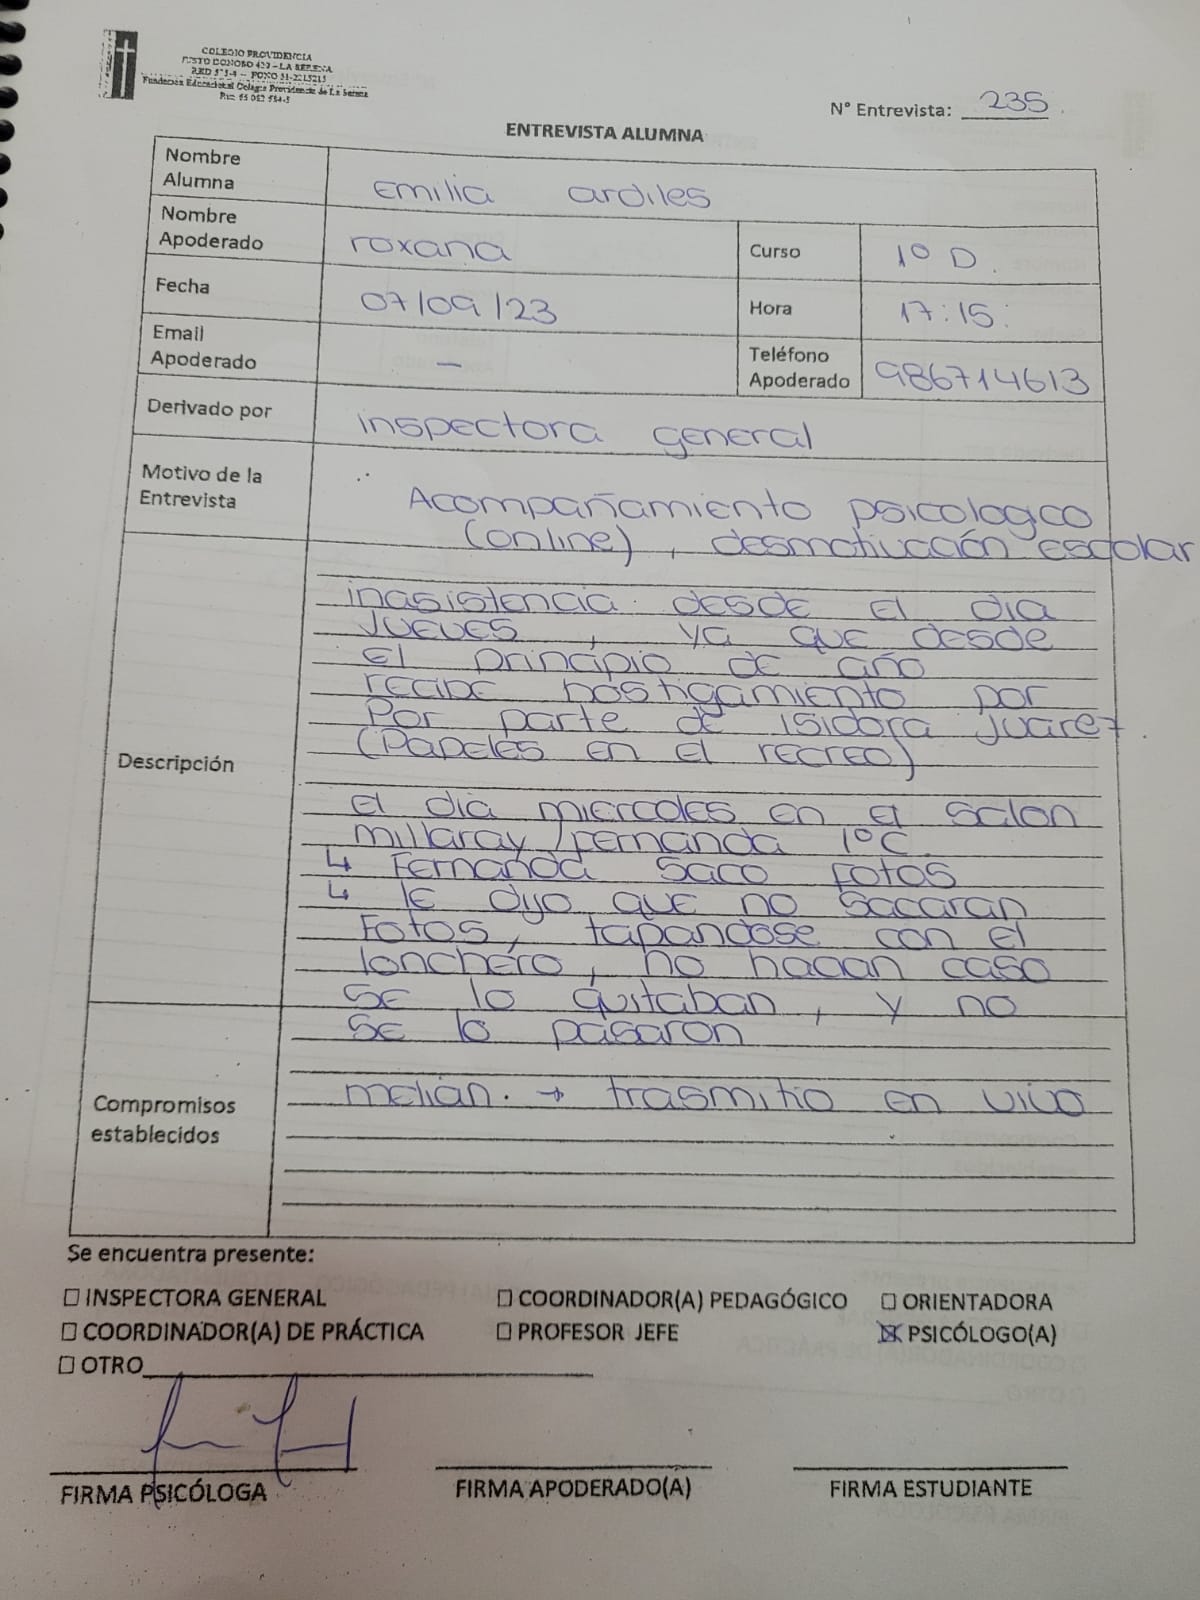 COLEGIO PROVIDENCIA
JUSTO DONOSO 420 - LA SERENA
RBD 575-4 - FONO 51-2215215
Fundación Educacional Colegio Providencia de La Serena
N° Entrevista: 235
ENTREVISTA ALUMNA
Nombre Alumna Emilia ardiles
Nombre Apoderado roxana Curso 1° D.
Fecha 07/09/23 Hora 17:15:
Email Apoderado — Teléfono Apoderado 986714613
Derivado por inspectora general
Motivo de la Entrevista Acompañamiento psicologico
(online), desmotivación escolar
Descripción
inasistencia desde el dia
jueves, ya que desde
el principio de año
recibe hostigamiento por
Por parte de isidora juarez.
(Papeles en el recreo)
el dia miercoles en el salon
millaray/Fernanda 1°C
↳ Fernanda saco fotos
↳ le dijo que no sacaran
Fotos, tapandose con el
lonchero, no hacian caso
se lo quitaban, y no
se lo pasaron
Compromisos establecidos
melian. → trasmitio en vivo
Se encuentra presente:
☐ INSPECTORA GENERAL ☐ COORDINADOR(A) PEDAGÓGICO ☐ ORIENTADORA
☐ COORDINADOR(A) DE PRÁCTICA ☐ PROFESOR JEFE ☒ PSICÓLOGO(A)
☐ OTRO
FIRMA PSICÓLOGA FIRMA APODERADO(A) FIRMA ESTUDIANTE